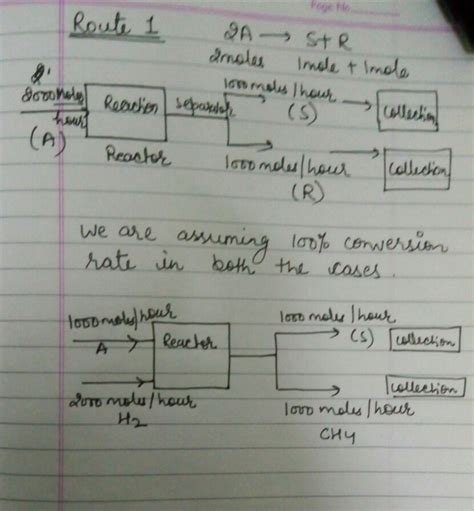 Page No.
Route 1
2A → S + R
2moles 1mole + 1mole
2000 moles/hour
(A)
Reaction
Reactor
separator
1000 moles/hour
(S)
collection
1000 moles/hour
(R)
collection
We are assuming 100% conversion
rate in both the cases.
1000 moles/hour
A
2000 moles/hour
H2
Reactor
1000 moles/hour
(S)
collection
collection
1000 moles/hour
CH4